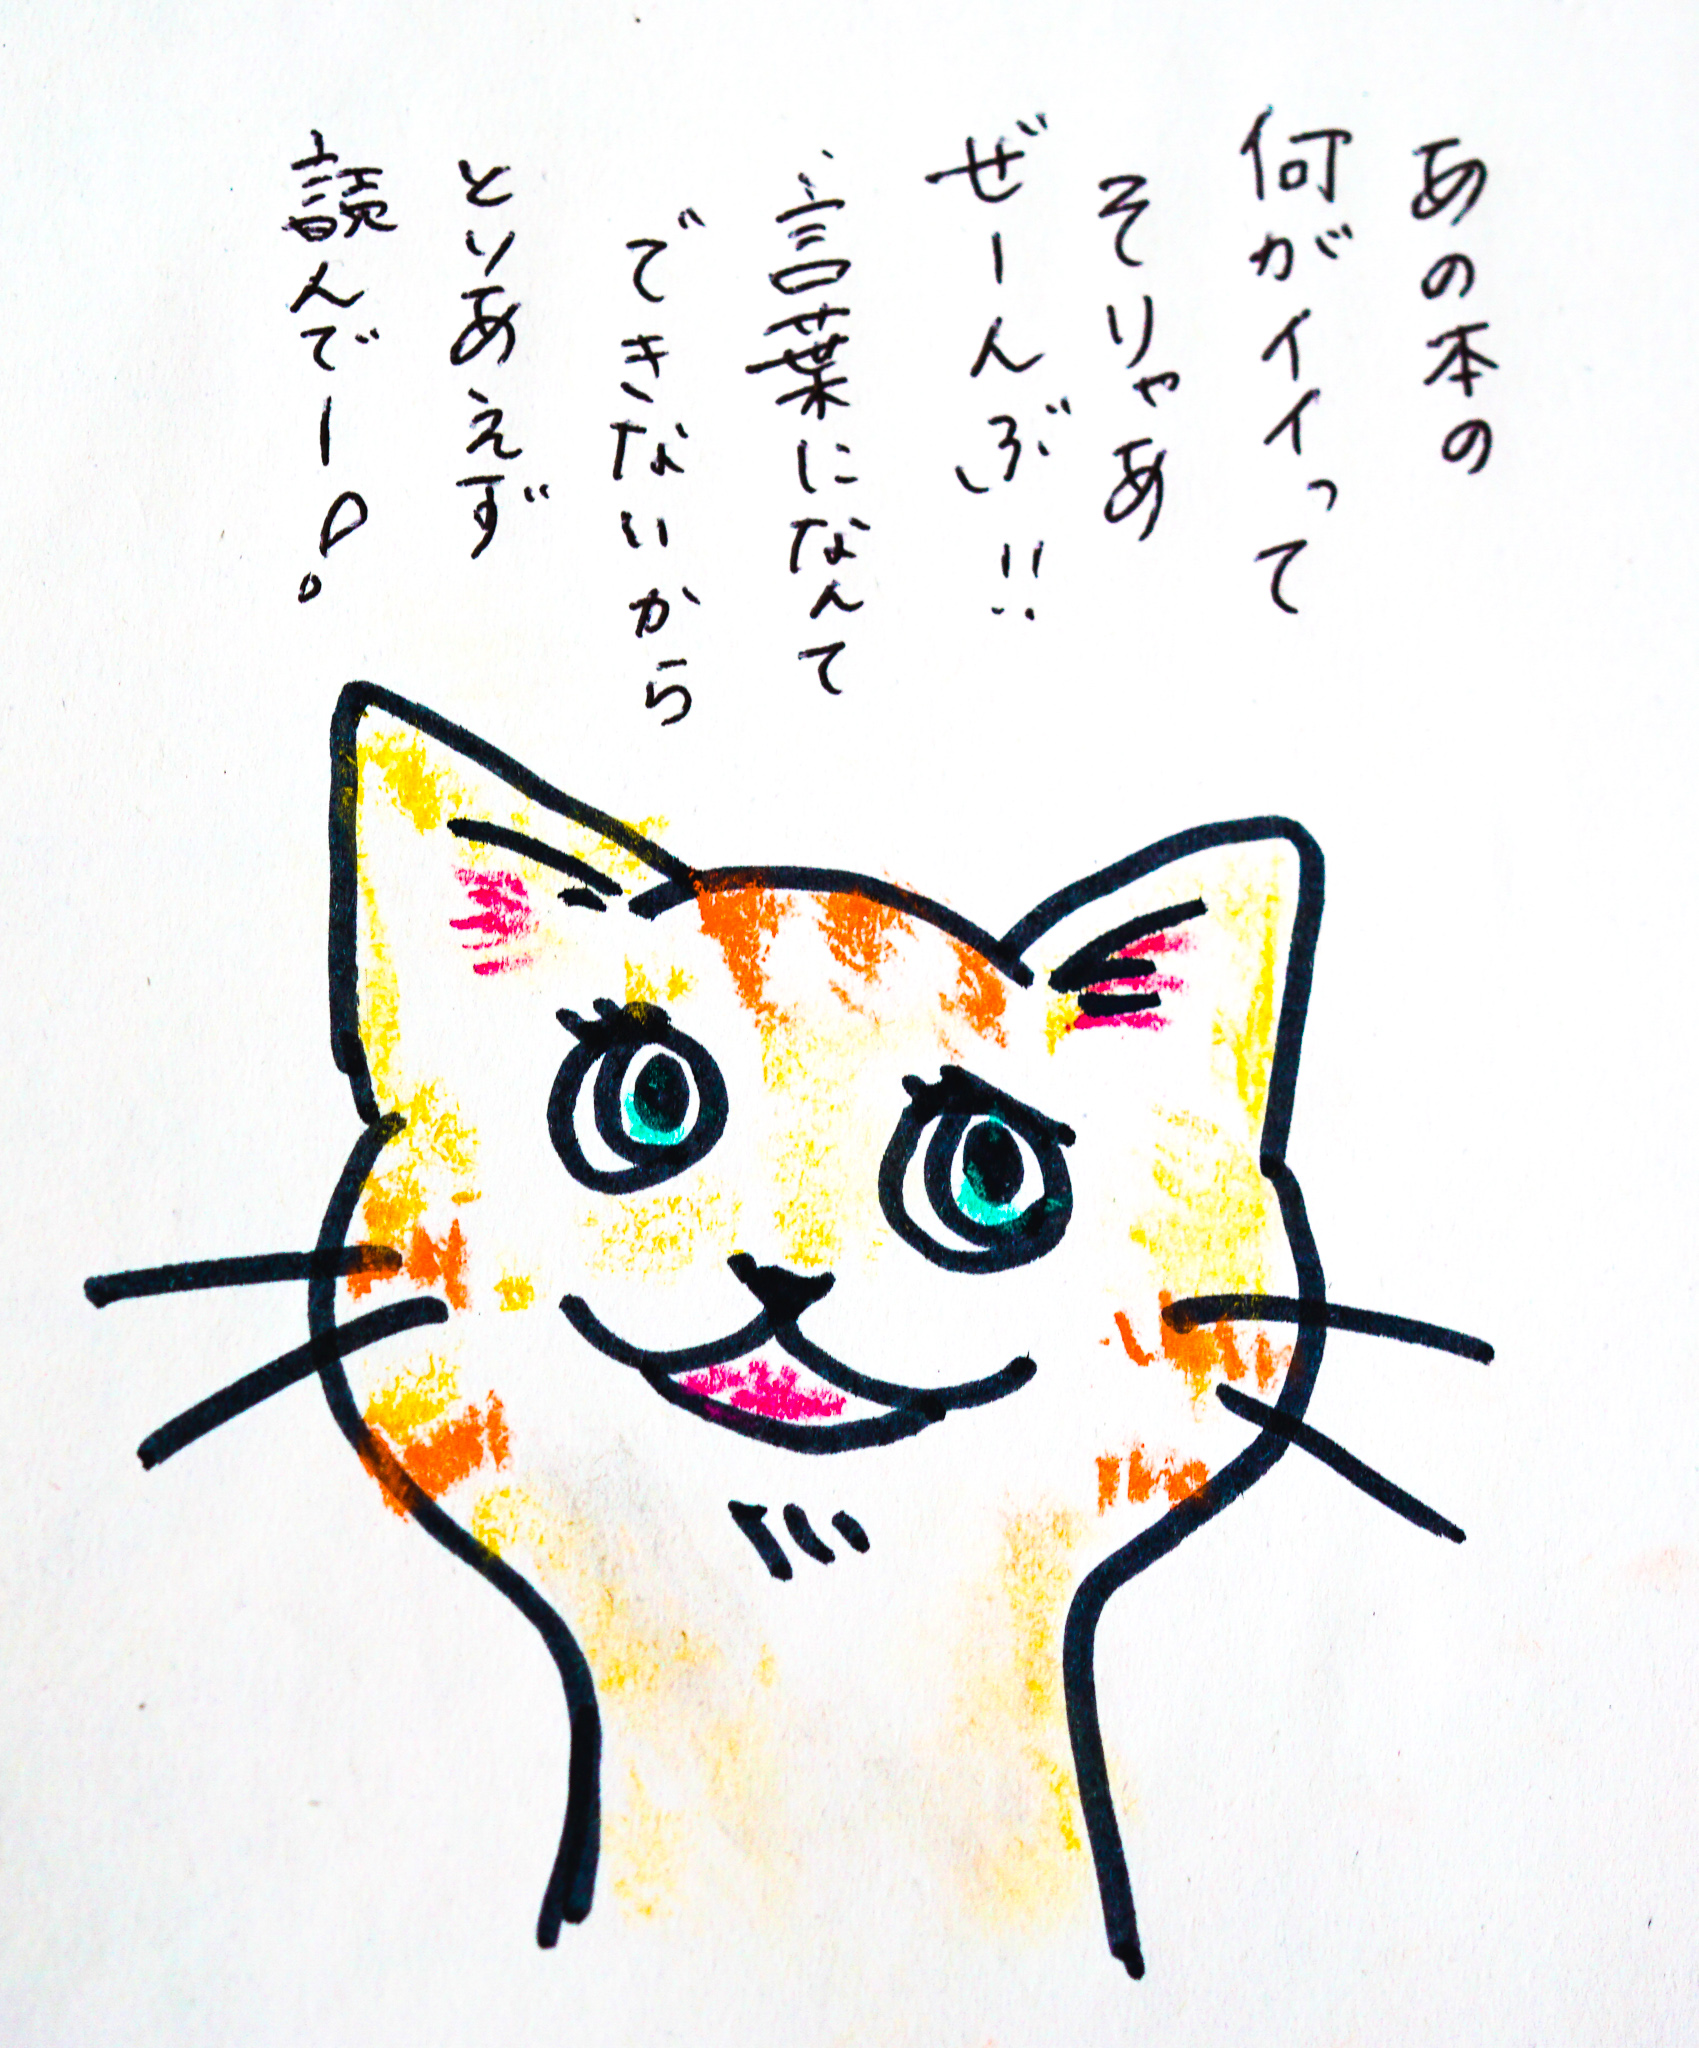 あの本の
何がイイって
そりゃあ
ぜーんぶ!!
言葉になんて
できないから
とりあえず
読んでー!